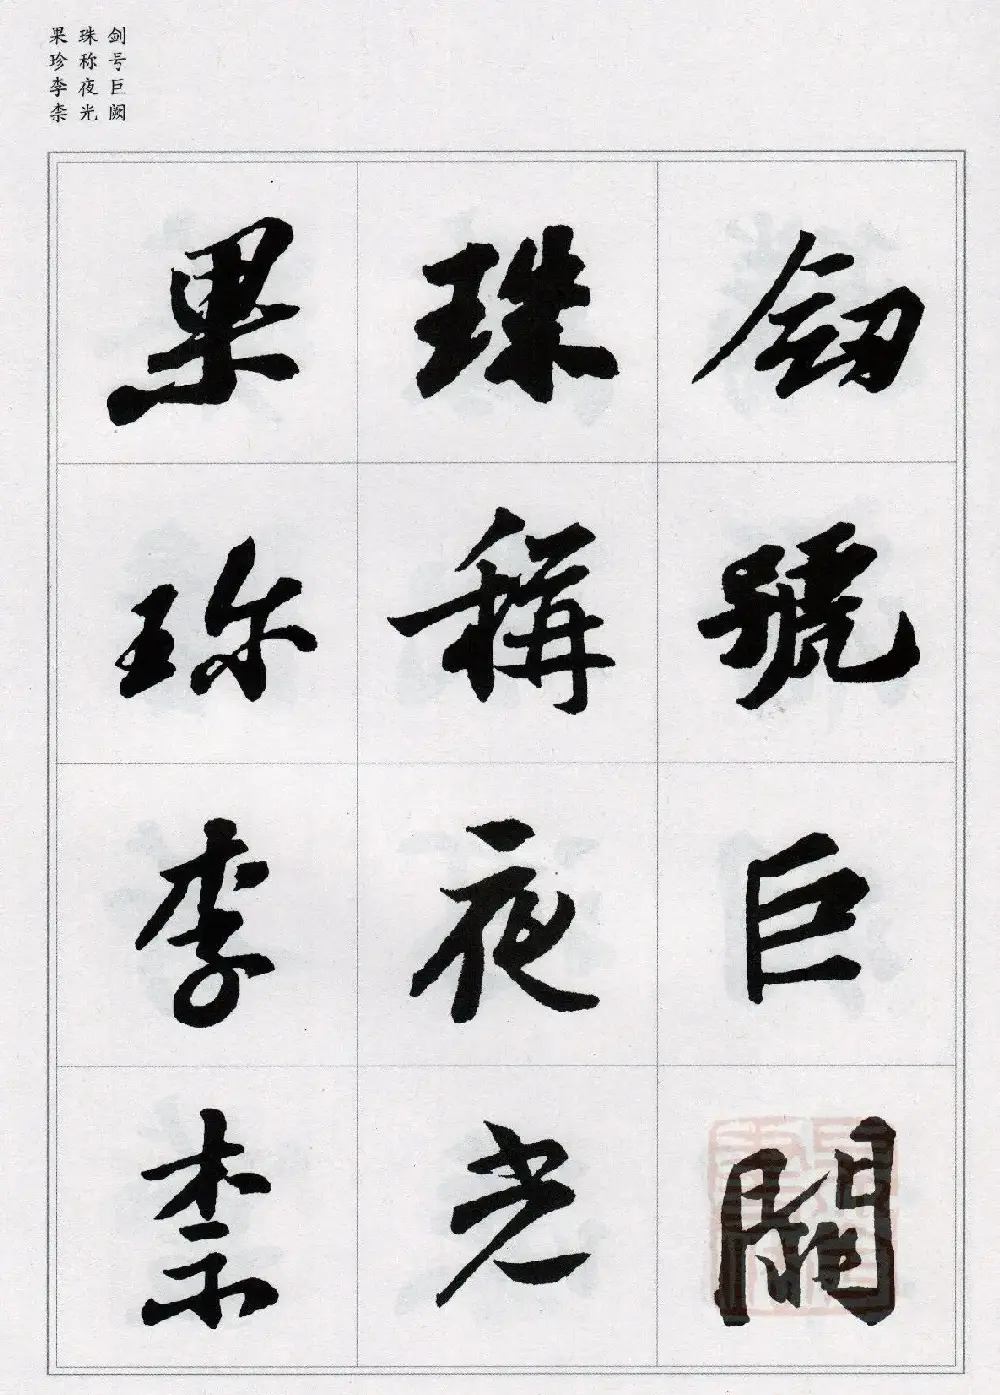 剑号巨阙
珠称夜光
果珍李柰
劒號巨闕
珠稱夜光
果珎李柰